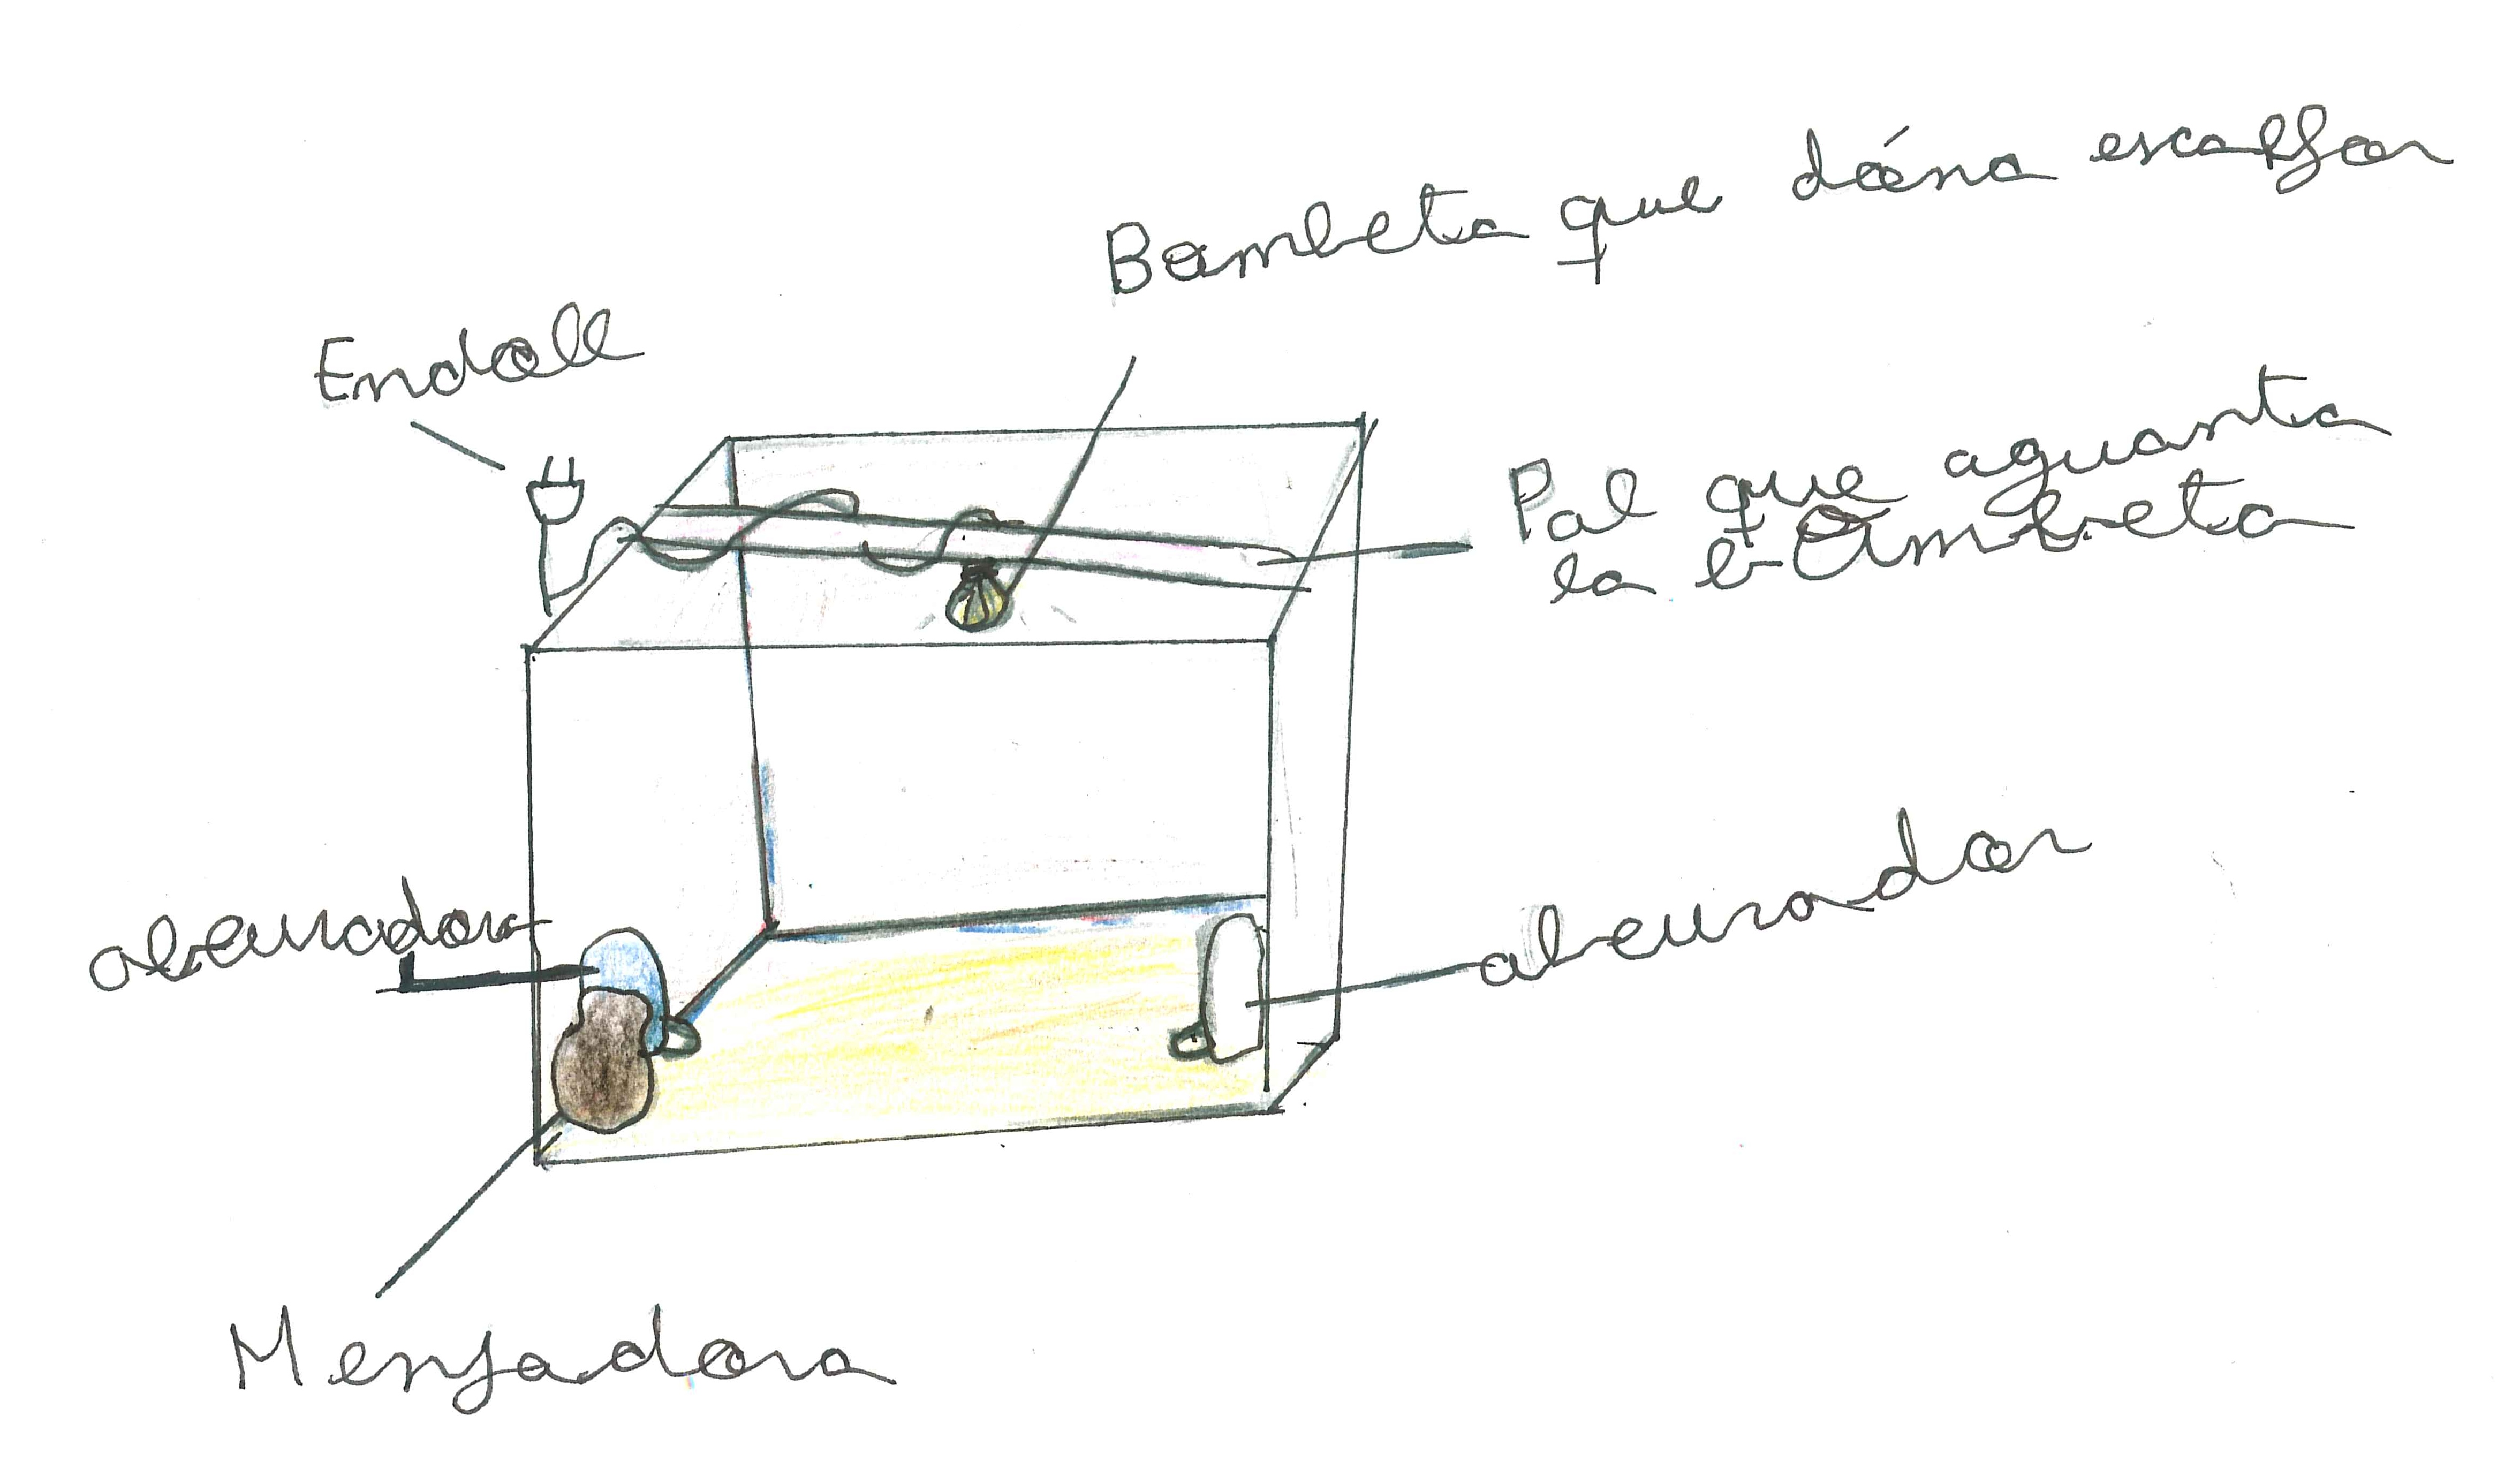 Bambeta que dóna escalfor
Endoll
Pal que aguanta
la bombeta
abeurador
abeurador
Menjadora